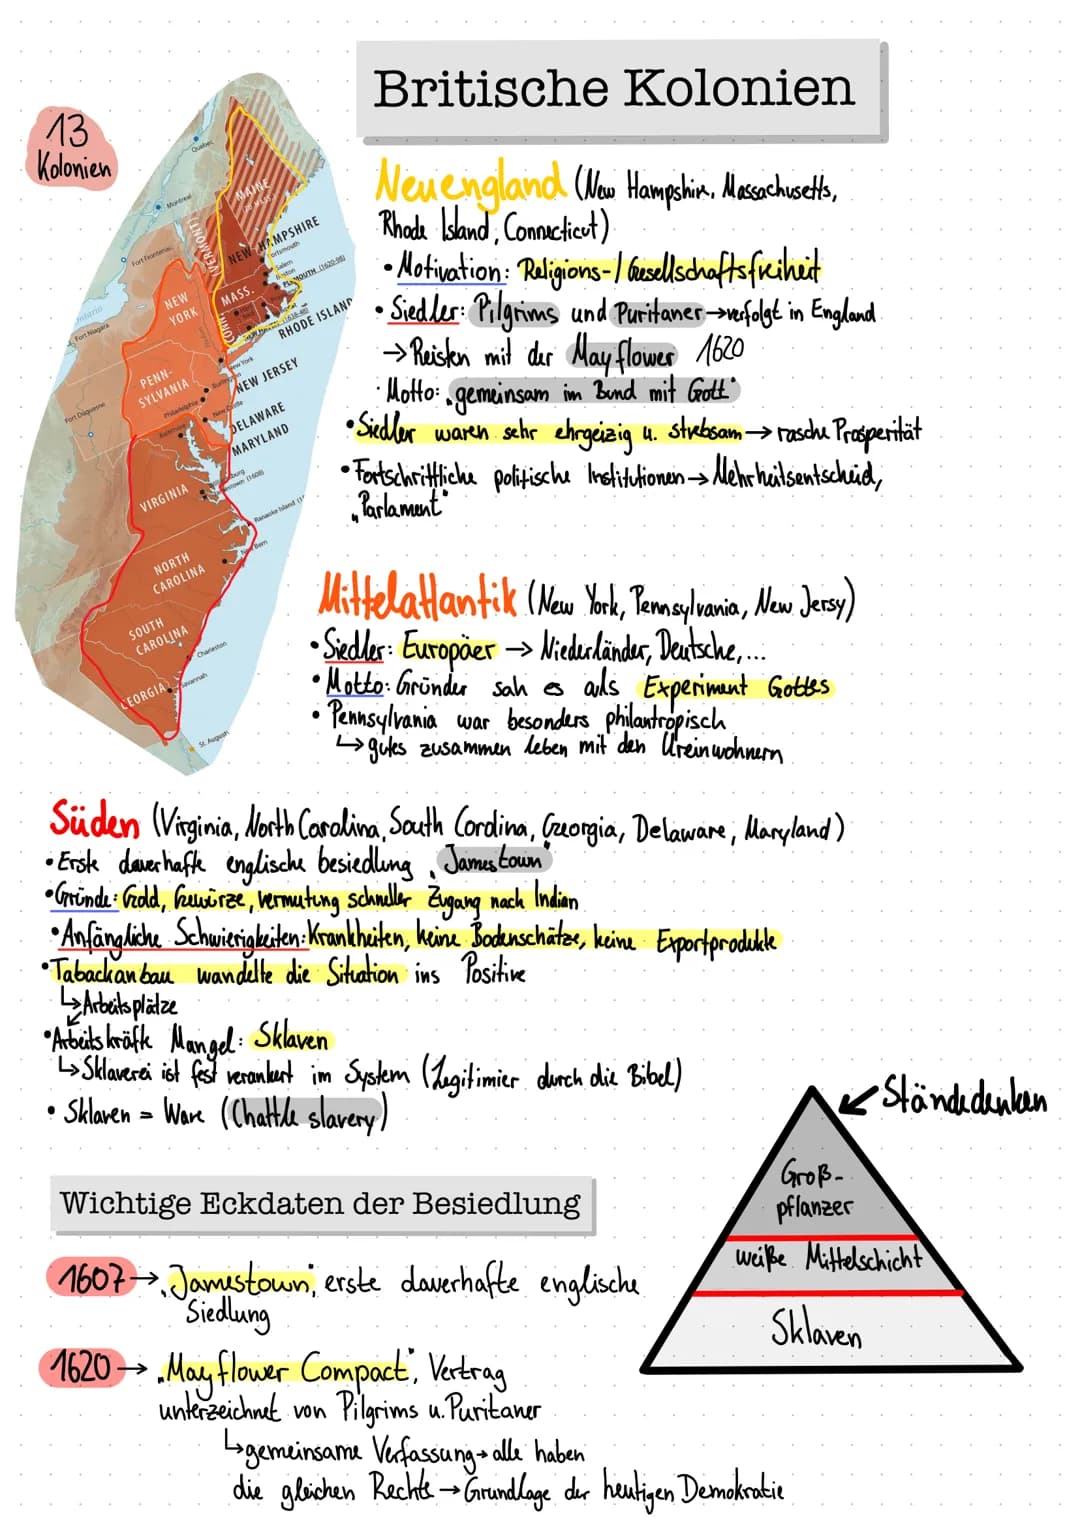 Britische Kolonien
13
Kolonien
Quebec
Montreal
Fort Frontenac
Ontario
Fort Niagara
Fort Duquesne
MAINE
(TO MASS.)
(VERMONT)
NEW HAMPSHIRE
Portsmouth
Salem
Boston
PLYMOUTH (1620-98)
MASS.
CONN.
RHODE ISLAND
NEW
YORK
New York
PENN-
SYLVANIA
Philadelphia
NEW JERSEY
New Castle
Baltimore
DELAWARE
MARYLAND
VIRGINIA
Roanoke Island
NORTH
CAROLINA
New Bern
SOUTH
CAROLINA
Charleston
Savannah
GEORGIA
St. August
Neuengland (New Hampshire, Massachusetts,
Rhode Island, Connecticut)
• Motivation: Religions-/Gesellschaftsfreiheit
• Siedler: Pilgrims und Puritaner → verfolgt in England
→ Reisten mit der Mayflower 1620
• Motto: „gemeinsam im Bund mit Gott"
• Siedler waren sehr ehrgeizig u. strebsam → rasche Prosperität
• Fortschrittliche politische Institutionen → Mehrheitsentscheid,
„Parlament"
Mittelatlantik (New York, Pennsylvania, New Jersy)
• Siedler: Europäer → Niederländer, Deutsche,...
• Motto: Gründer sah es als Experiment Gottes
• Pennsylvania war besonders philantropisch
↳ gutes zusammen leben mit den Ureinwohnern
Süden (Virginia, North Carolina, South Cordina, Georgia, Delaware, Maryland)
• Erste dauerhafte englische besiedlung „Jamestown"
• Gründe: Gold, Gewürze, vermutung schneller Zugang nach Indian
• Anfängliche Schwierigkeiten: Krankheiten, keine Bodenschätze, keine Exportprodukte
• Tabackanbau wandelte die Situation ins Positive
↳ Arbeitsplätze
• Arbeitskräfte Mangel: Sklaven
↳ Sklaverei ist fest verankert im System (Legitimier durch die Bibel)
• Sklaven = Ware (Chattle slavery)
Ständedenken
Groß-
pflanzer
weiße Mittelschicht
Sklaven
Wichtige Eckdaten der Besiedlung
1607 → „Jamestown", erste dauerhafte englische
Siedlung
1620 → „Mayflower Compact", Vertrag
unterzeichnet von Pilgrims u. Puritaner
↳ gemeinsame Verfassung → alle haben
die gleichen Rechte → Grundlage der heutigen Demokratie